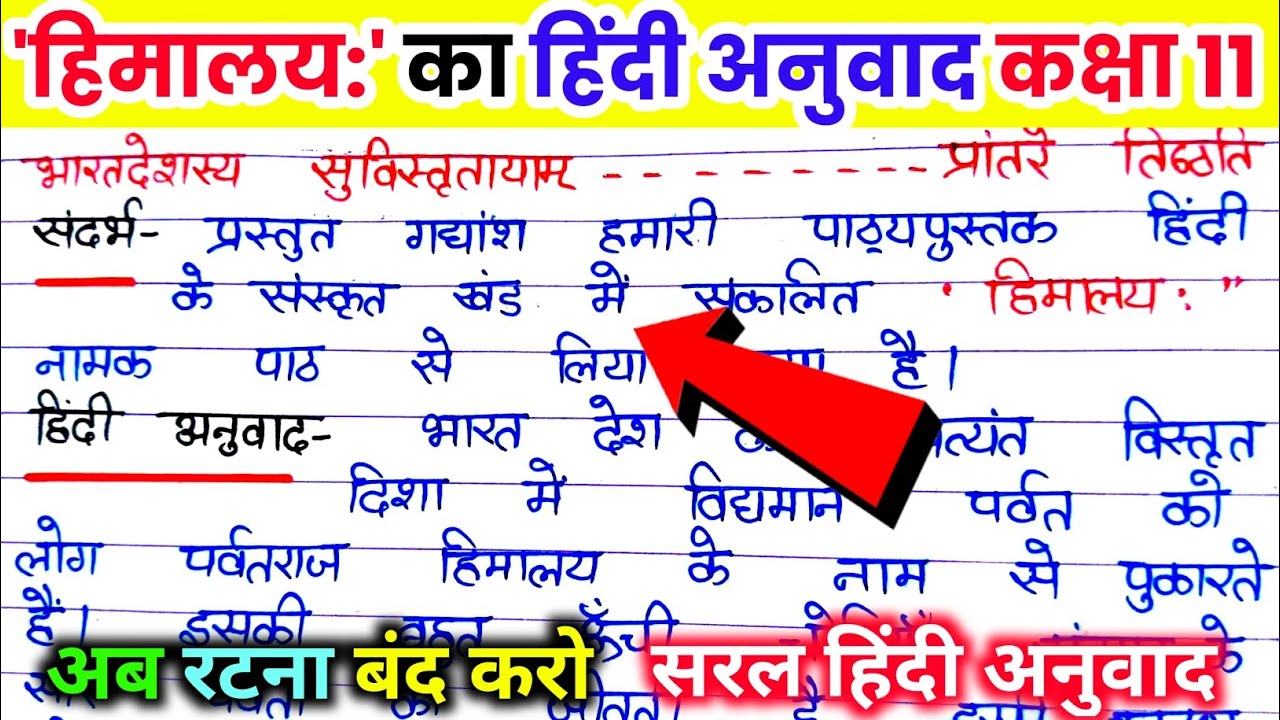 'हिमालय:' का हिंदी अनुवाद कक्षा 11
भारतदेशस्य सुविस्तृतायाम् - - - - - - - - - प्रांतरे तिष्ठति
संदर्भ- प्रस्तुत गद्यांश हमारी पाठ्यपुस्तक हिंदी
के संस्कृत खंड में संकलित " हिमालय : "
नामक पाठ से लिया है।
हिंदी अनुवाद- भारत देश विस्तृत
दिशा में विद्यमान पर्वत को
लोग पर्वतराज हिमालय के नाम से पुकारते
हैं। इसकी बहुत ऊँची के
अब रटना बंद करो सरल हिंदी अनुवाद